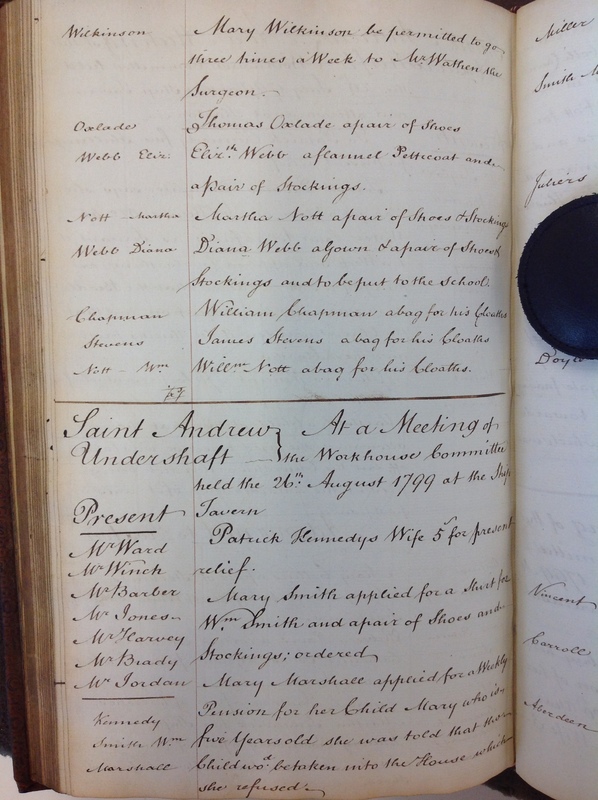 Wilkinson Mary Wilkinson be permitted to go
three times a Week to Mr. Wathen the
Surgeon.
Oxlade Thomas Oxlade a pair of Shoes
Webb Eliz: Eliz.th Webb a flannel Petticoat and
a pair of Stockings.
Nott Martha Martha Nott a pair of Shoes & Stockings
Webb Diana Diana Webb a Gown & a pair of Shoes &
Stockings and to be put to the School.
Chapman William Chapman a bag for his Cloaths
Stevens James Stevens a bag for his Cloaths
Nott Wm Willm Nott a bag for his Cloaths.
Saint Andrew } At a Meeting of
Undershaft the Workhouse Committee
held the 26th August 1799 at the Ship
Present Tavern
Mr Ward Patrick Kennedys Wife 5s/ for present
Mr Winch relief.
Mr Barber Mary Smith applied for a Shirt for
Mr Jones Wm Smith and a pair of Shoes and
Mr Harvey
Mr Brady Stockings; ordered
Mr Jordan Mary Marshall applied for a Weekly
Kennedy Pension for her Child Mary who is
Smith Wm five Years old she was told that the
Marshall Child wod. be taken into the House which
she refused.
Miller
Smith M
Juliers
Doyle
Vincent
Carroll
Aberdeen